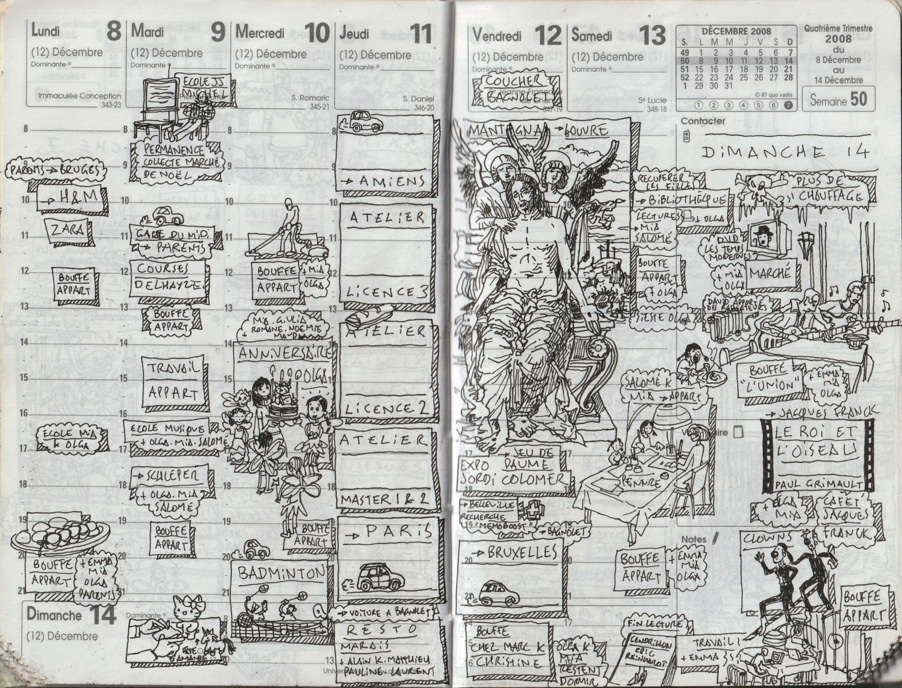 Lundi 8
(12) Décembre
Dominante
Immaculée Conception
343-23
8
9
PARENTS → BRUGES
→ H&M
10
ZARA
11
12
BOUFFE
APPART
13
14
15
16
ECOLE MIA
+ OLGA
17
18
19
20
BOUFFE
APPART
+ EMMA
MIA
OLGA
PARENTS
21
Dimanche 14
(12) Décembre
Dominante
Mardi 9
(12) Décembre
Dominante
ECOLE JJ
MICHEL
PERMANENCE
COLLECTE MARCHÉ
DE NOËL
GARE DU MIDI
→ PARENTS
COURSES
DELHAYZE
BOUFFE
APPART
TRAVAIL
APPART
ECOLE MUSIQUE
+ OLGA. MIA. SALOMÉ
→ SCHLEPER
+ OLGA. MIA
SALOMÉ
BOUFFE
APPART
Mercredi 10
(12) Décembre
Dominante
S. Romaric
345-21
BOUFFE
APPART
+ MIA
OLGA
MIA. GIULIA
ROMANE. NOEMIE
ANNIVERSAIRE
OLGA
BOUFFE
APPART
BADMINTON
Jeudi 11
(12) Décembre
Dominante
S. Daniel
346-20
→ AMIENS
ATELIER
LICENCE 3
ATELIER
LICENCE 2
ATELIER
MASTER 1 & 2
→ PARIS
→ VOITURE A BAGNOLET
RESTO
MARAIS
+ ALAIN K. MATTHIEU
PAULINE LAURENT
Vendredi 12
(12) Décembre
Dominante
COUCHER
BAGNOLET
MANTEGNA → LOUVRE
→ JEU DE
PAUME
EXPO
JORDI COLOMER
→ BELLEVILLE
RECHERCHE
MEMOBOOST
→ BAGNOLET
→ BRUXELLES
BOUFFE
CHEZ MARC K
CHRISTINE
OLGA
MIA
RESTENT
DORMIR
Samedi 13
(12) Décembre
Dominante
Ste Lucie
348-18
RECUPERER
LES FILLES
→ BIBLIOTHEQUE
LECTURES
+ MIA
SALOMÉ
+ OLGA
BOUFFE
APPART
+ MIA
+ OLGA
SIESTE OLGA
SALOME K
MIA → APPART
PEINTURE
BOUFFE
APPART
+ EMMA
MIA
OLGA
FIN LECTURE
CENDRILLON
ERIC
REINHARDT
DÉCEMBRE 2008
S. L M M J V S D
49 1 2 3 4 5 6 7
50 8 9 10 11 12 13 14
51 15 16 17 18 19 20 21
52 22 23 24 25 26 27 28
1 29 30 31
© BT quo vadis
1 2 3 4 5 6 7
Quatrième Trimestre
2008
du
8 Décembre
au
14 Décembre
Semaine 50
Contacter
DIMANCHE 14
PLUS DE
CHAUFFAGE
DVD
LES TEMPS
MODERNES
+ MIA
OLGA
MARCHÉ
BOUFFE
"L'UNION"
+ EMMA
MIA
OLGA
→ JACQUES FRANCK
LE ROI ET
L'OISEAU
PAUL GRIMAULT
+ OLGA
MIA
CAFET'
JACQUES
FRANCK
Notes
CLOWNS
BOUFFE
APPART
TRAVAIL